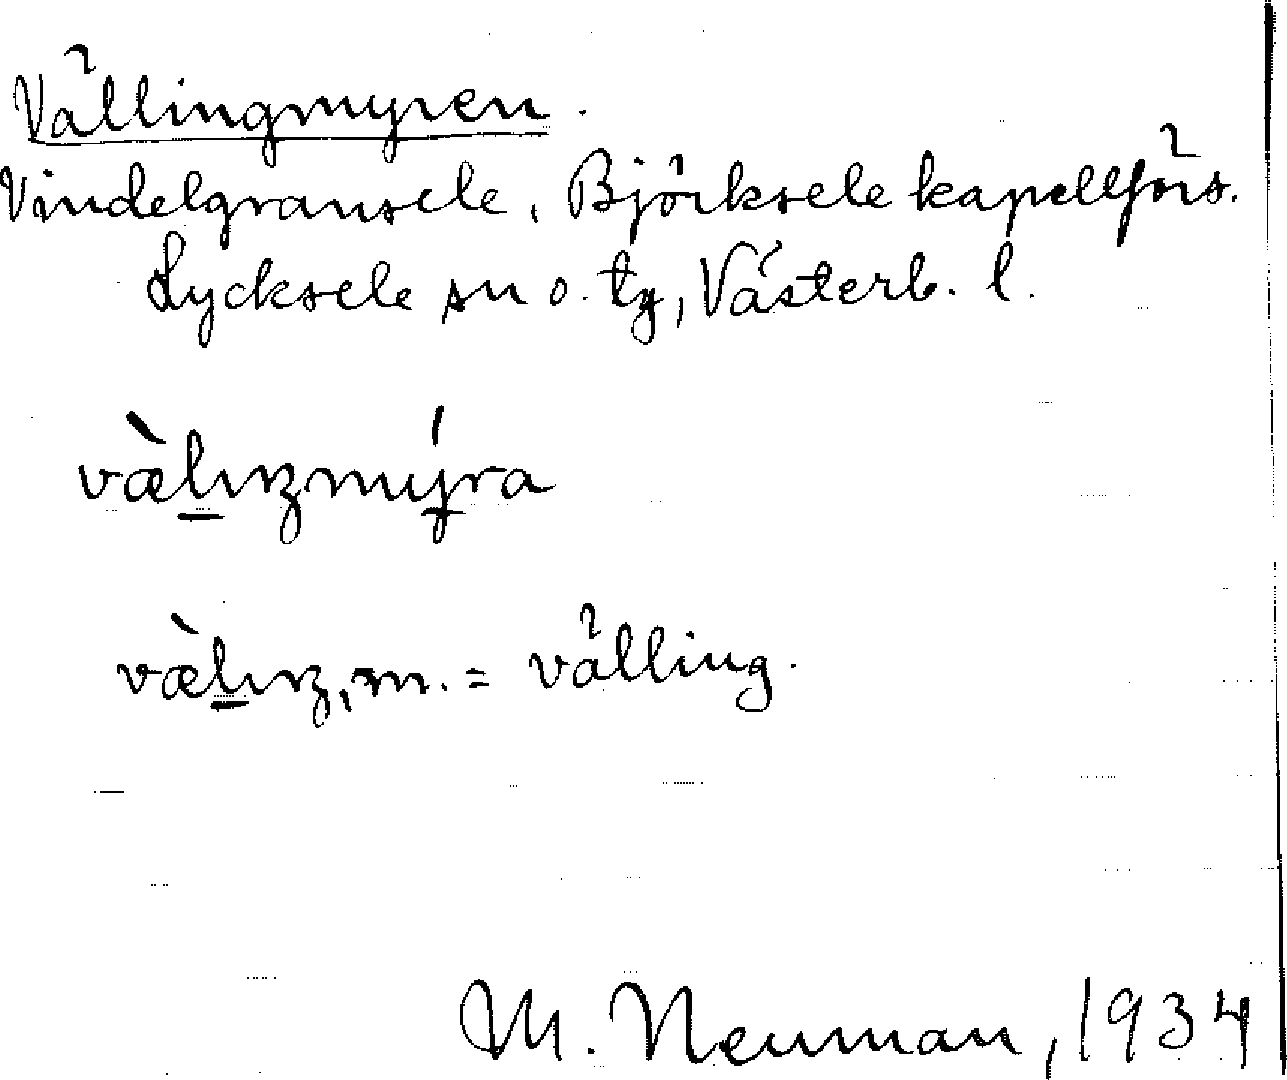 Vällingmyren.
Vindelgransele, Björksele kapellförs.
Lycksele sn o. tg, Västerb. l.
væ̀lıŋmýra
væ̀lıŋ, m. = välling.
M. Neuman, 1934